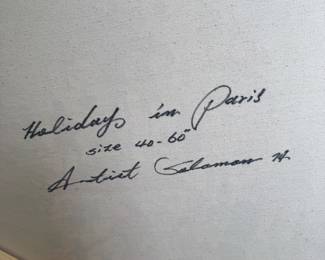 Holidays in Paris
size 40-60"
Artist Solomon